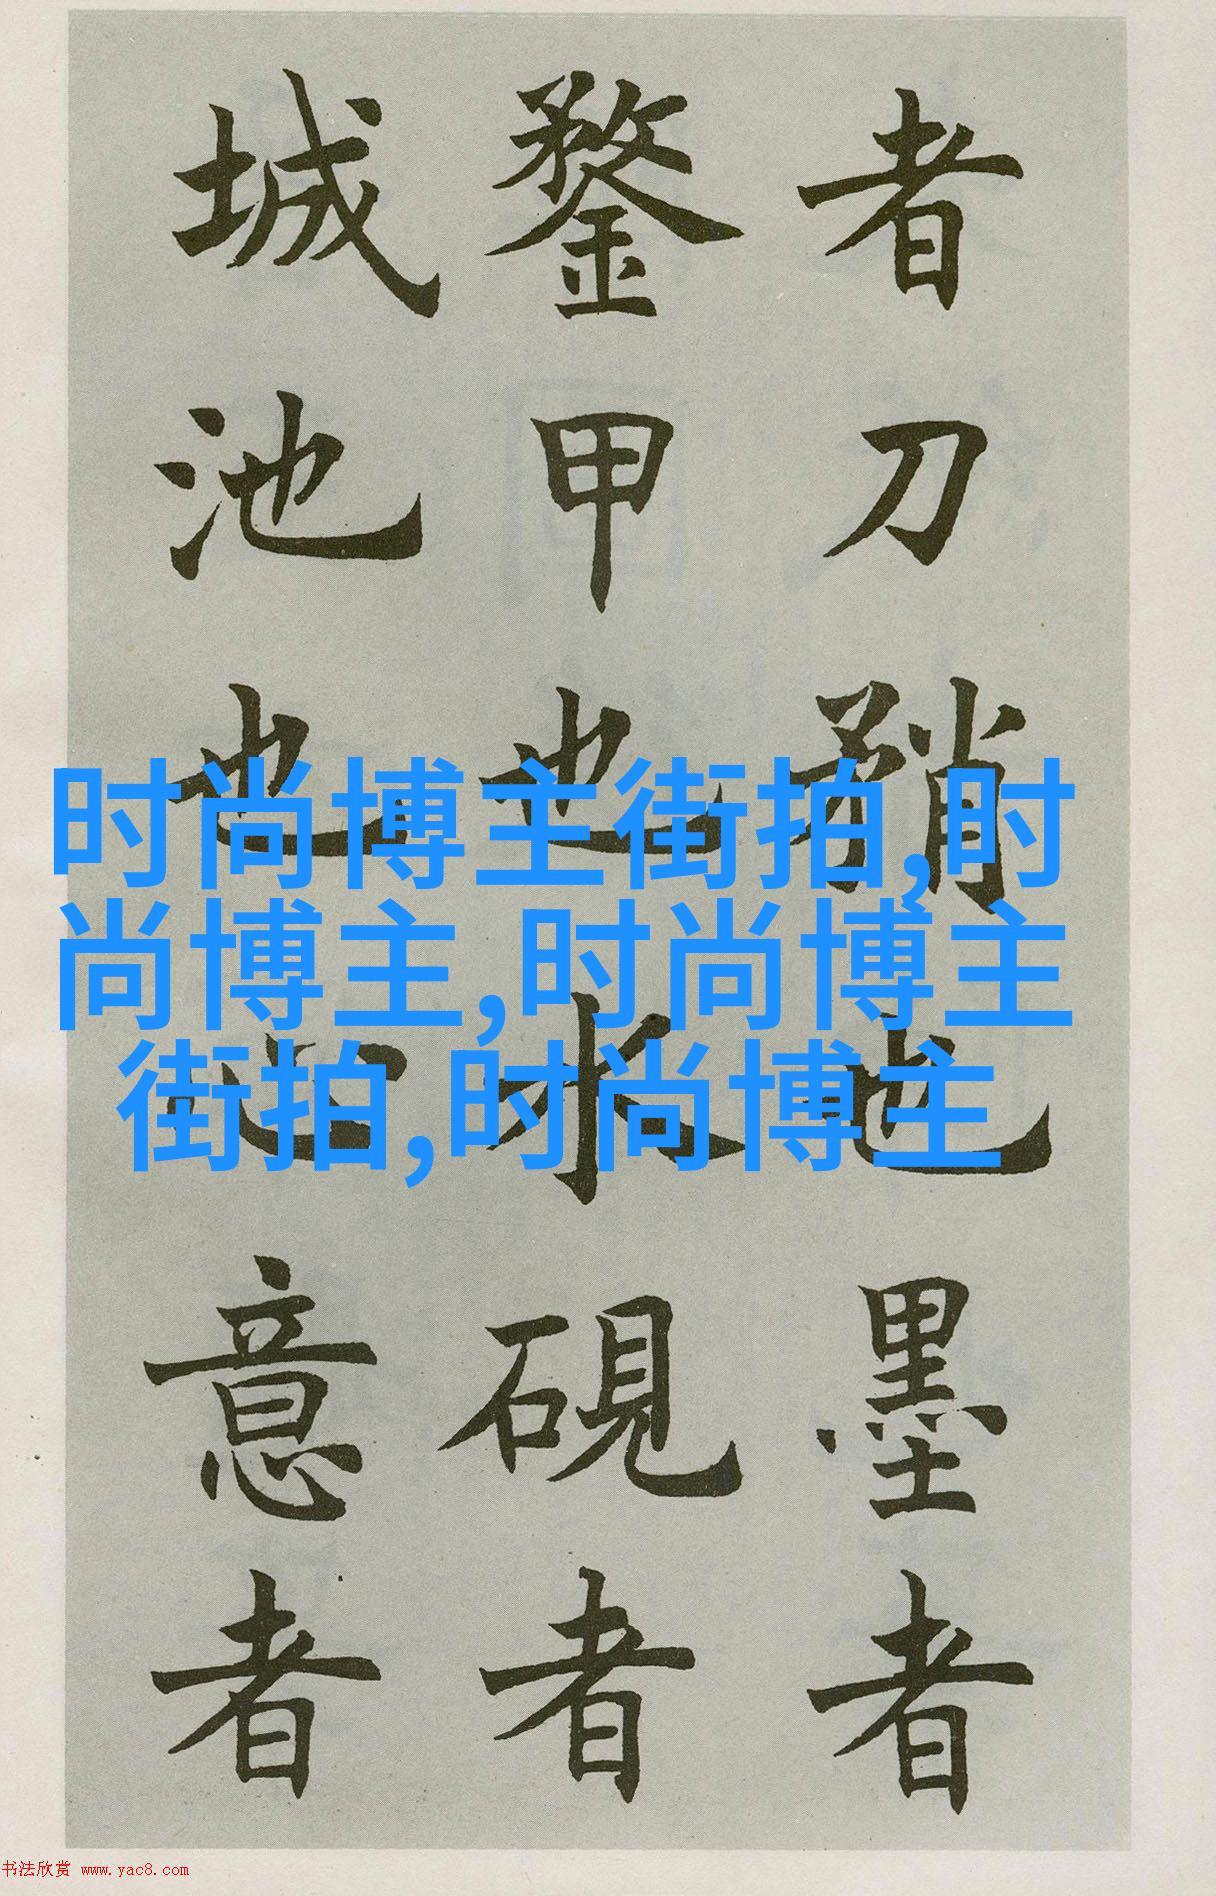 者刀矟也墨者
鍪甲也水硯者
城池也心意者
时尚博主街拍,时
尚博主,时尚博主
街拍,时尚博主
书法欣赏 www.yac8.com